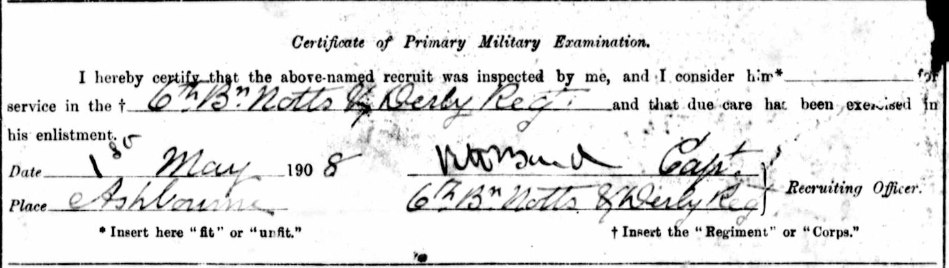 Certificate of Primary Military Examination.
I hereby certify that the above-named recruit was inspected by me, and I consider him* for
service in the † 6th Bn Notts & Derby Regt. and that due care has been exercised in
his enlistment.
Date 1st May 1908 Capt.
Recruiting Officer.
Place Ashbourne 6th Bn Notts & Derby Reg
* Insert here "fit" or "unfit." † Insert the "Regiment" or "Corps."